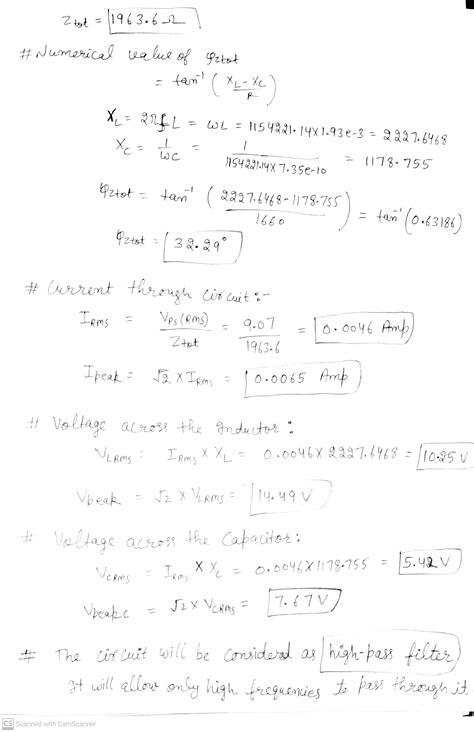 Ztot = 1963.6 Ω
# Numerical value of φztot
= tan⁻¹ ( XL - XC / R )
XL = 2πfL = ωL = 1154221.14 X 1.93e-3 = 2227.6468
XC = 1 / ωC = 1 / 1154221.14 X 7.35e-10 = 1178.755
φztot = tan⁻¹ ( 2227.6468 - 1178.755 / 1660 ) = tan⁻¹ (0.63186)
φztot = 32.29°
# Current through circuit :-
IRMS = VPS (RMS) / Ztot = 9.07 / 1963.6 = 0.0046 Amp
Ipeak = √2 X IRMS = 0.0065 Amp
# Voltage across the Inductor :
VLRMS = IRMS X XL = 0.0046 X 2227.6468 = 10.25 V
Vpeak = √2 X VLRMS = 14.49 V
# Voltage across the Capacitor :
VCRMS = IRMS X XC = 0.0046 X 1178.755 = 5.42 V
Vpeakc = √2 X VCRMS = 7.67 V
# The circuit will be considerd as high-pass filter
It will allow only high frequencies to pass through it.
CS Scanned with CamScanner